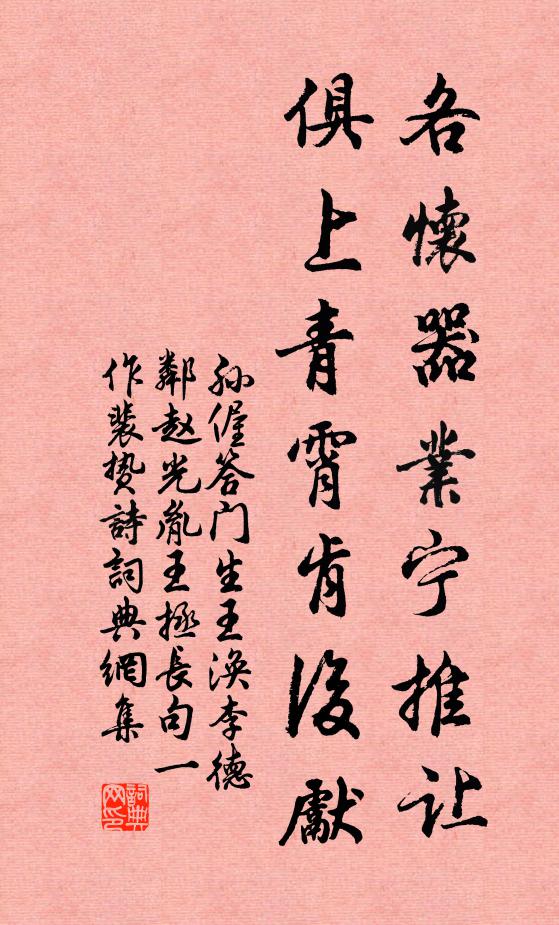 各懷器業宁推让
俱上青霄肯後獻
孙偓答门生王涣李德
鄰赵光胤王拯長句一
作裴贽詩詞典網集
詞典
网印